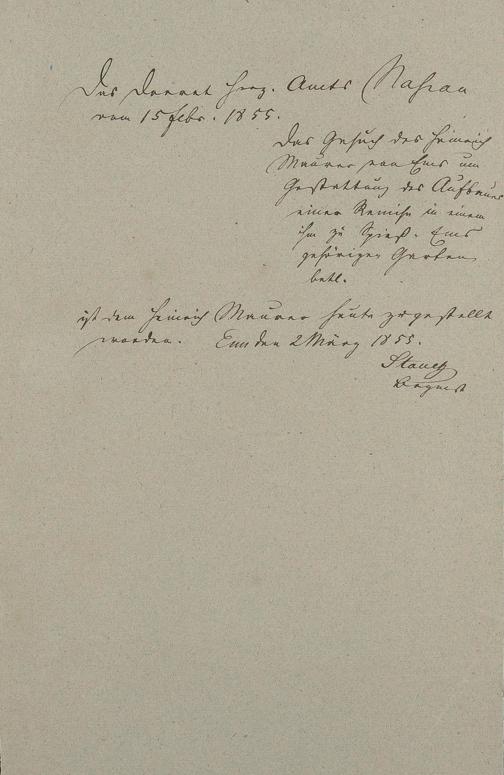 Das Decret Herz. Amts Nassau
vom 15 Febr. 1855.
Das Gesuch des Heinrich
Maurer von Ems um
Gestattung des Aufbaues
einer Remise in einem
ihm zu Spieß. Ems
gehörigen Garten
betr.
ist dem Heinrich Maurer heute zugestellt
worden. Ems den 2 März 1855.